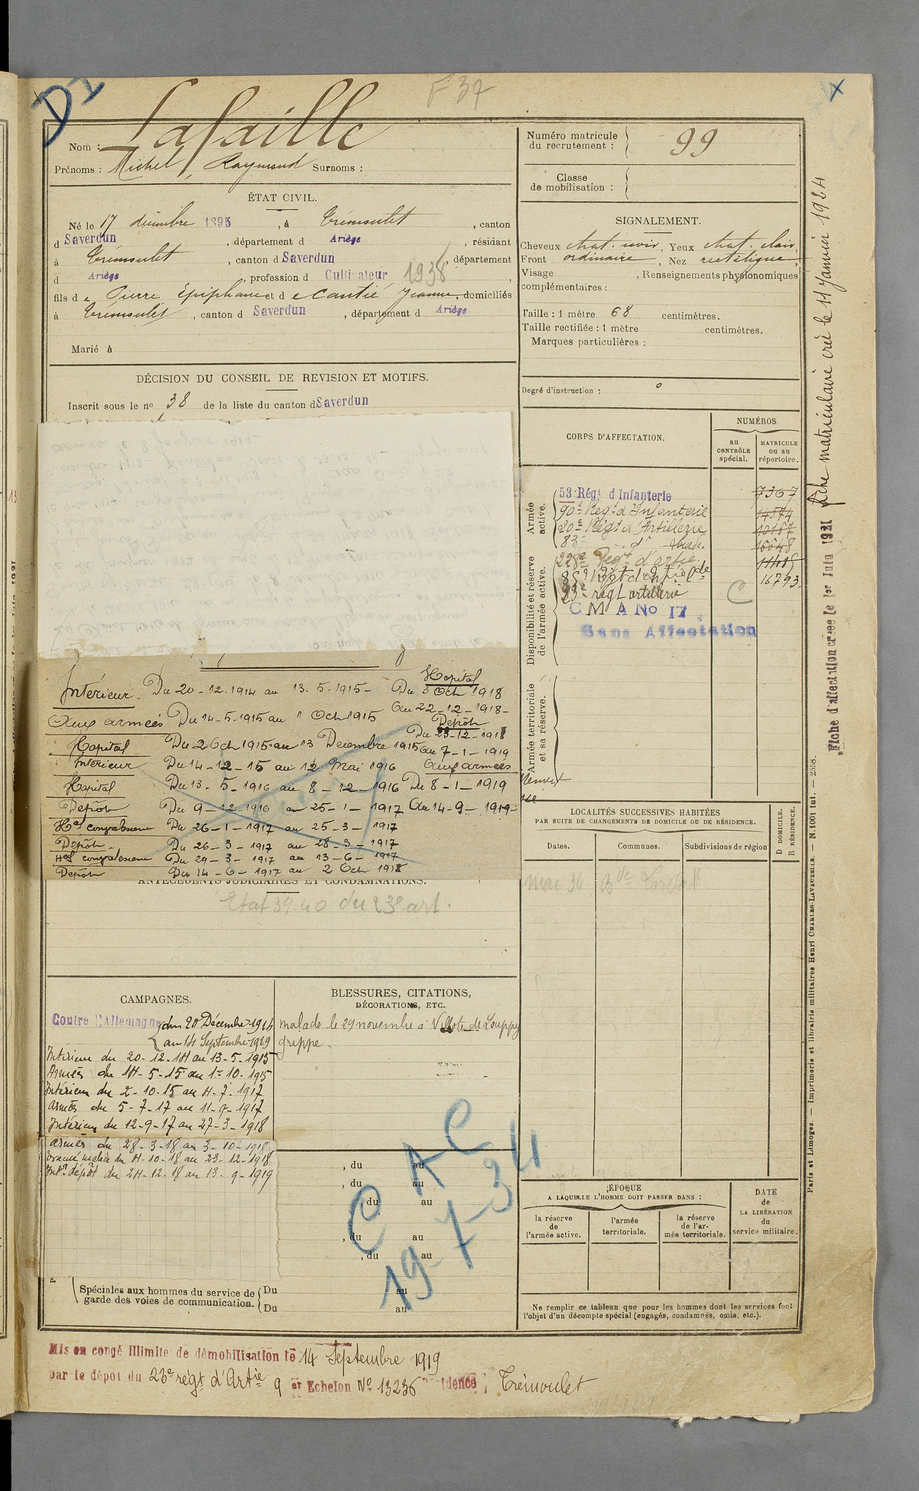 D1
F 37
X
Nom : Lafaille
Prénoms : Michel, Raymond Surnoms :
ÉTAT CIVIL.
Né le 17 décembre 1895, à Trémoulet, canton
d Saverdun, département d Ariège, résidant
à Trémoulet, canton d Saverdun, département
d Ariège, profession d Cultivateur 1938
fils d e Pierre Epiphane et d e Cantié Jeanne, domiciliés
à Trémoulet, canton d Saverdun, département d Ariège
Marié à
DÉCISION DU CONSEIL DE REVISION ET MOTIFS.
Inscrit sous le no 38 de la liste du canton d Saverdun
Intérieur Du 20-12-1914 au 13-5-1915-
Aux armées Du 14-5-1915 au 1 Oct 1915
Hopital Du 2 Oct 1915 au 13 Decembre 1915
Interieur Du 14-12-15 au 12 Mai 1916
Hopital Du 13-5-1916 au 8-12-1916
Depôt Du 9-12-1916 au 25-1-1917
Hal convalescence Du 26-1-1917 au 25-3-1917
Depôt Du 26-3-1917 au 28-3-1917
Hal convalescence Du 29-3-1917 au 13-6-1917
Depôt Du 14-6-1917 au 2 Oct 1918
Hopital
Du 3 Oct 1918
Au 22-12-1918-
Depôt
Du 23-12-1918
au 7-1-1919
Aux armées
Du 8-1-1919
Au 14-9-1919-
ANTÉCÉDENTS JUDICIAIRES ET CONDAMNATIONS.
Etat 39-40 du 23e art.
CAMPAGNES.
Contre l'Allemagne du 20 Décembre 1914
au 14 Septembre 1919
Intérieur du 20-12-14 au 13-5-1915
Armées du 14-5-15 au 1-10-1915
Intérieur du 2-10-15 au 4-7-1917
Armées du 5-7-17 au 11-9-1917
Intérieur du 12-9-17 au 27-3-1918
Armées du 28-3-18 au 3-10-1918
du 4-10-18 au 23-12-1918
Int. dépôt du 24-12-18 au 13-9-1919
BLESSURES, CITATIONS,
DÉCORATIONS, ETC.
malade le 29 novembre à Villotte de Louppy
grippe.
, du au
, du au
, du au
, du au
, du au
C A C
19-7-34
Spéciales aux hommes du service de
garde des voies de communication.
Du au
Du au
Numéro matricule
du recrutement : 99
Classe
de mobilisation :
SIGNALEMENT.
Cheveux chat. noir, Yeux chat. clair
Front ordinaire, Nez rectiligne,
Visage , Renseignements physionomiques
complémentaires :
Taille : 1 mètre 68 centimètres.
Taille rectifiée : 1 mètre centimètres.
Marques particulières :
Degré d'instruction : 0
CORPS D'AFFECTATION.
NUMÉROS
au
CONTRÔLE
spécial.
MATRICULE
ou au
répertoire.
Armée
active.
53 Régt d'Infanterie 7367
90e Régt d'Infanterie
20e Régt d'Artillerie
83e
Disponibilité et réserve
de l'armée active.
228e Régt d'artie
16793
23e régt artillerie
C
C M A No 17
Sans Affectation
Armée territoriale
et sa réserve.
LOCALITÉS SUCCESSIVES HABITÉES
PAR SUITE DE CHANGEMENTS DE DOMICILE OU DE RÉSIDENCE.
Dates. Communes. Subdivisions de région
D DOMICILE.
R RÉSIDENCE.
mai 36
ÉPOQUE
A LAQUELLE L'HOMME DOIT PASSER DANS :
la réserve
de
l'armée active.
l'armée
territoriale.
la réserve
de l'ar-
mée territoriale.
DATE
de
LA LIBÉRATION
du
service militaire.
Ne remplir ce tableau que pour les hommes dont les services font
l'objet d'un décompte spécial (engagés, condamnés, omis, etc.).
Fiche matriculaire créé le 11 Janvier 1924
Fiche d'affectation créée le 1er Juin 1921
Paris et Limoges. — Imprimerie et librairie militaires Henri CHARLES-LAVAUZELLE. — N. 1001 Int. — 2538.
Mis en congé illimité de démobilisation le 14 Septembre 1919
par le dépôt du 23e régt d'Artie 9 er Echelon No 13236 Résidence : Trémoulet